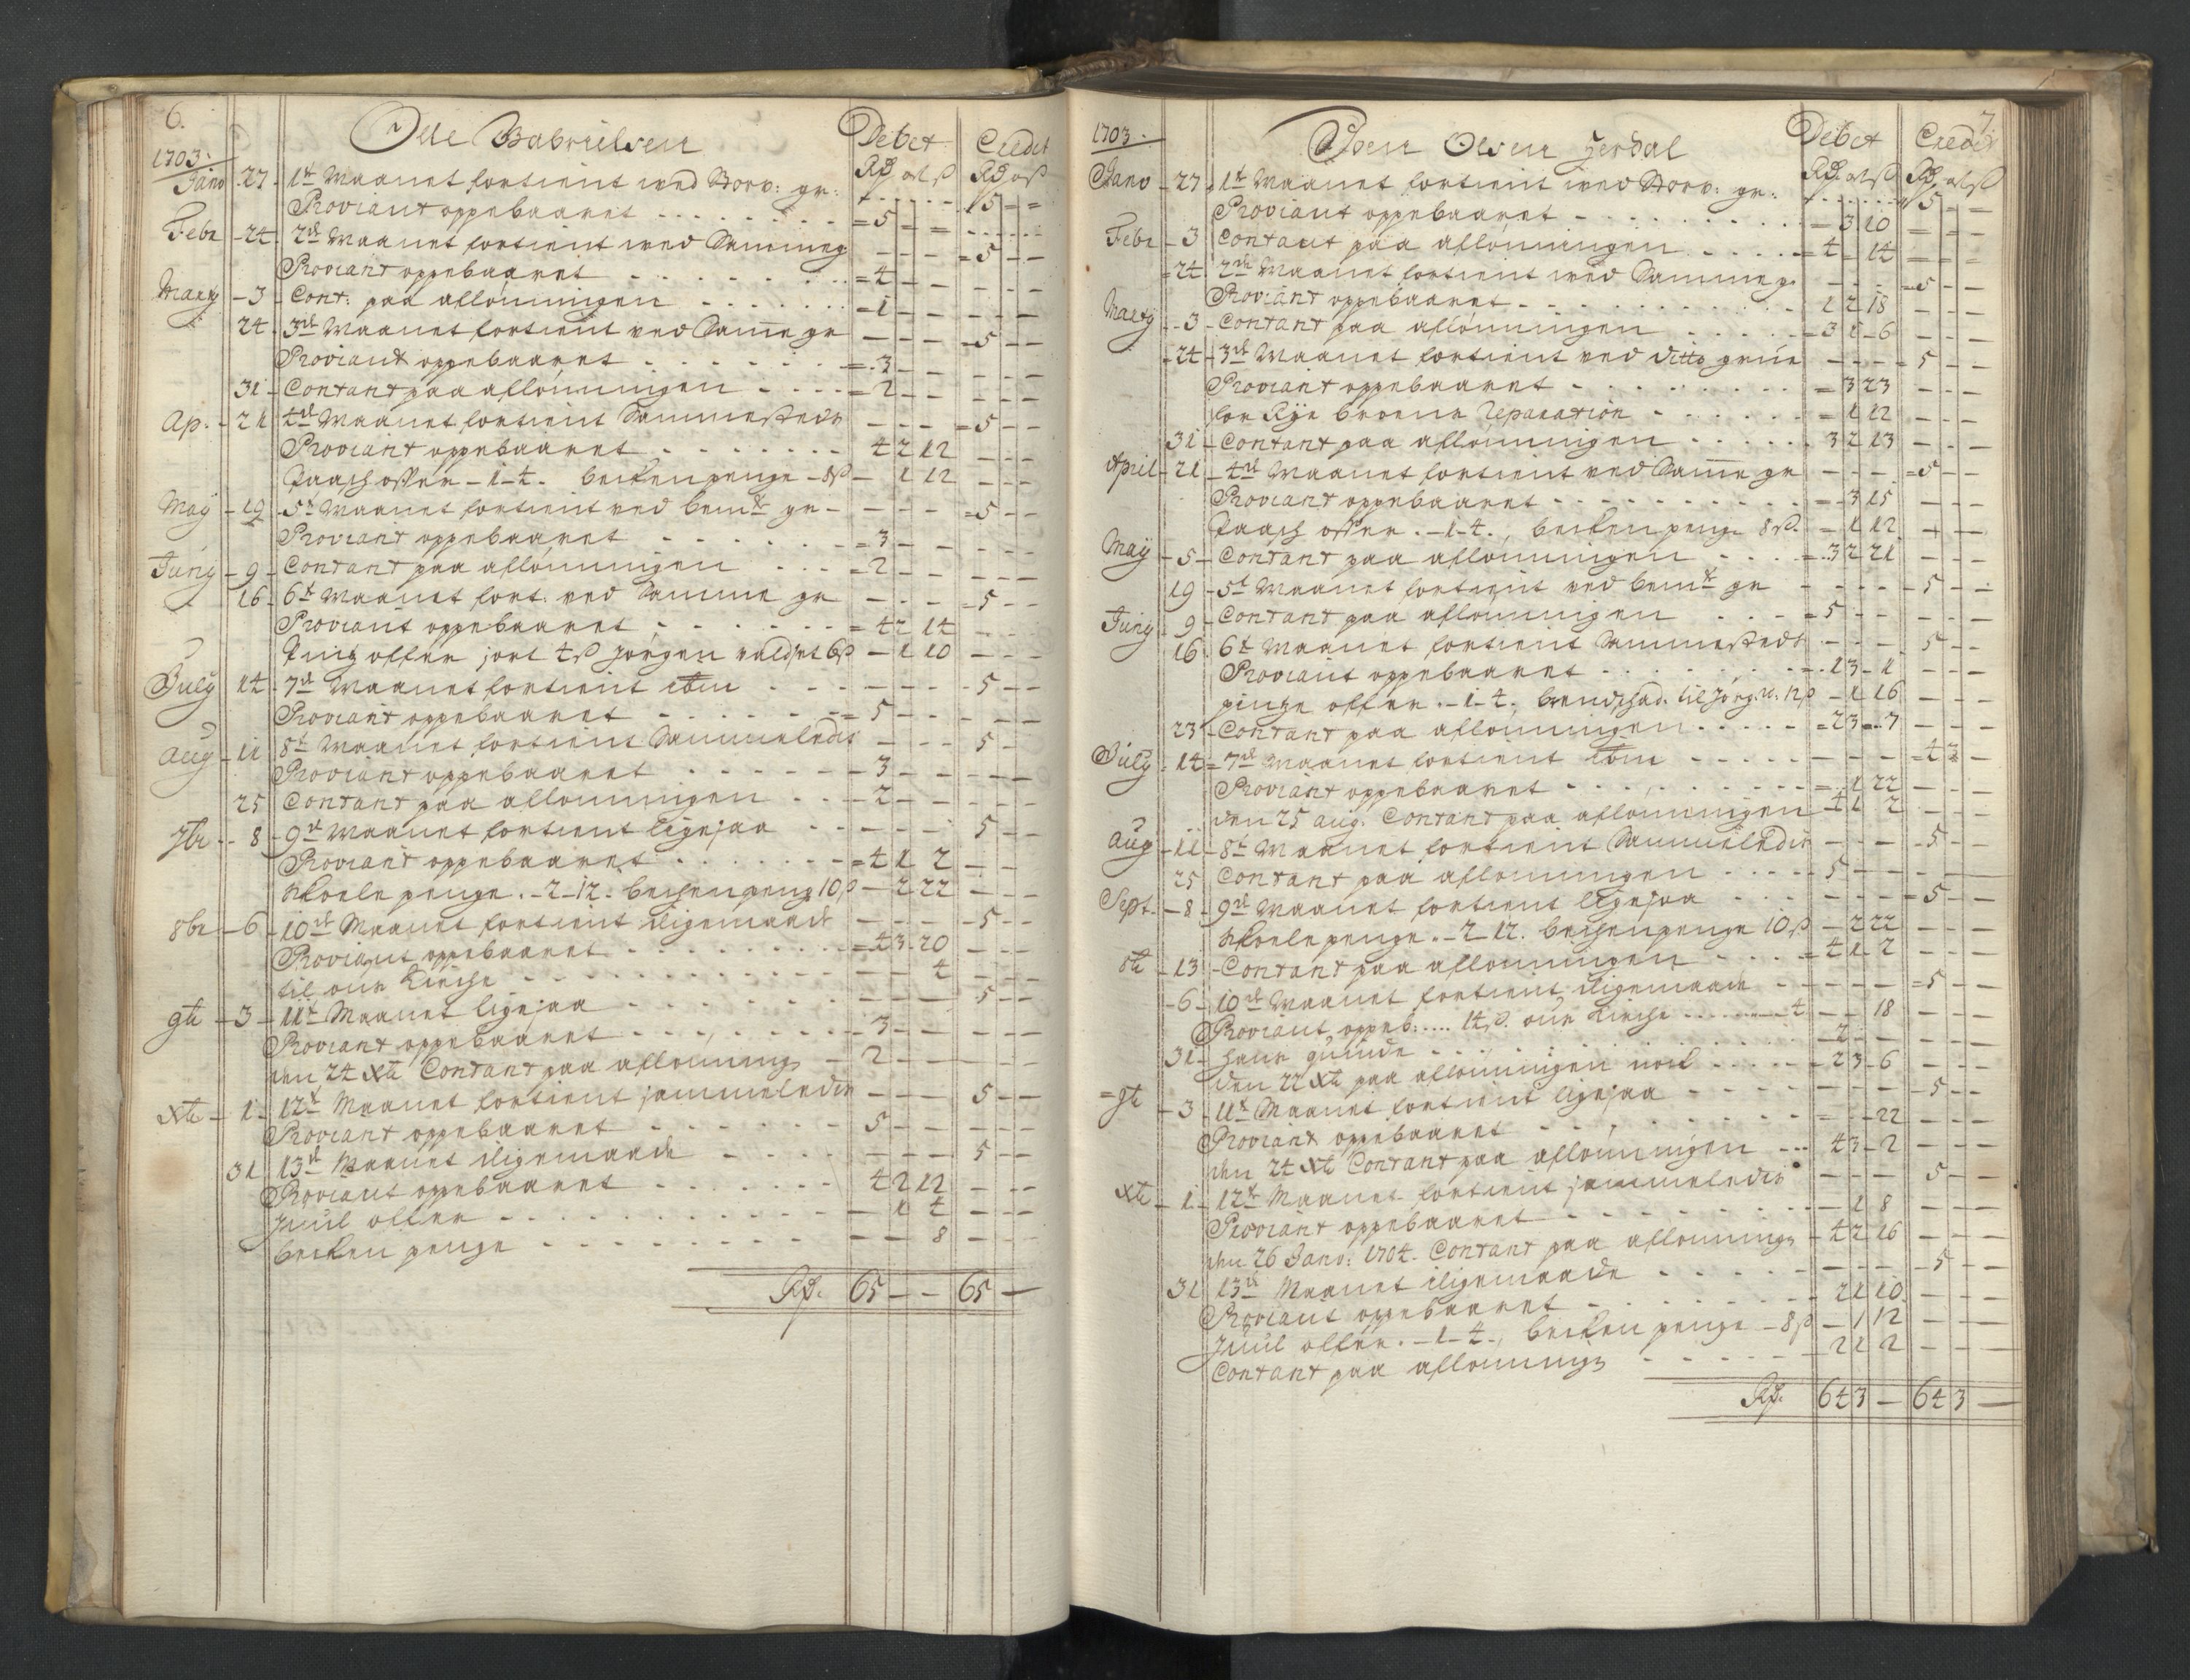 6.
1703.
Olle Gabrielsen Debet Credet
Rd ort ß Rd ort ß
Janv 27 1te Maanet fortient wed Norv: gr: 5
Proviant oppebaaret 5
Febr 24 2de Maanet fortient wed Samme g 5
Proviant oppebaaret 4
Marty 3 Cont: paa aflönningen 1
24 3de Maanet fortient ved Same gr 5
Proviant oppebaaret 3
31 Contant paa aflönningen 2
Ap. 21 4de Maanet fortient Sammesteds 5
Proviant oppebaaret 4 2 12
Paasch offer - 1 - 4. becken penge - 8ß 1 12
May 19 5te Maanet fortient ved bemte gr 5
Proviant oppebaaret 3
Juny 9 Contant paa aflönningen 2
16 6te Maanet fort: ved Samme gr 5
Proviant oppebaaret 4 2 14
Pintz offer 1 10
July 14 7de Maanet fortient 5
Proviant oppebaaret 5
Aug 11 8te Maanet fortient Sammeledes 5
Proviant oppebaaret 3
25 Contant paa aflönningen 2
7br 8 9de Maanet fortient ligesaa 5
Proviant oppebaaret 4 1 2
Skoele penge. - 2 - 12. becken peng 10ß 2 22
8br 6 10de Maanet fortient iligemaade 5
Proviant oppebaaret 4 3 20
til our Kirche 4
9br 3 11te Maanet ligesaa 5
Proviant oppebaaret 3
den 24 Xbr Contant paa aflönning 2
Xbr 1 12te Maanet fortient sammeledes 5
Proviant oppebaaret 5
31 13de Maanet iligemaade 5
Proviant oppebaaret 4 2 12
Juul offer 1 4
becken penge 8
Rd. 65 - - 65 -
7
1703.
Iver Olsen Jerdal Debet Credet
Rd ort ß Rd ort ß
Janv 27 1te Maanet fortient wed Norv: gr: 5
Proviant oppebaaret 3 10
Febr 3 Contant paa aflönningen 4 14
24 2de Maanet fortient wed Samme g 5
Proviant oppebaaret 1 2 18
Marty 3 Contant paa aflönningen 3 1 6
24 3de Maanet fortient ved ditto grue 5
Proviant oppebaaret 3 23
for Rye broens reparation 1 12
31 Contant paa aflönningen 3 2 13
April 21 4de Maanet fortient ved Same gr 5
Proviant oppebaaret 3 15
Paasch offer. - 1 - 4., becken peng 8ß. 1 12
May 5 Contant paa aflönningen 3 2 21
19 5te Maanet fortient ved bemte gr 5
Juny 9 Contant paa aflönningen 5
16 6te Maanet fortient Sammesteds 5
Proviant oppebaaret 1 3 1
pintze offer. - 1 - 4. 1 16
23 Contant paa aflönningen 2 3 7
July 14 7de Maanet fortient 4 3
Proviant oppebaaret 1 22
den 25 aug. Contant paa aflönningen 4 1 2
Aug 11 8te Maanet fortient Sammeledes 5
25 Contant paa aflönningen 5
Sept. 8 9de Maanet fortient ligesaa 5
Skoele penge. - 2 - 12. becken penge 10ß 2 22
8br 13 Contant paa aflönningen 4 1 2
6 10de Maanet fortient iligemaade 5
Proviant oppeb: .... 14ß. our Kirche 4 18
31 2
den 22 Xbr paa aflönningen 2 3 6
9br 3 11te Maanet fortient ligesaa 5
Proviant oppebaaret 22
den 24 Xbr Contant paa aflönningen 4 3 2
Xbr 1 12te Maanet fortient sammeledes 5
Proviant oppebaaret 1 8
den 26 Janv: 1704. Contant paa aflönning 4 2 16
31 13de Maanet iligemaade 5
Proviant oppebaaret 2 1 10
Juul offer. - 1 - 4., becken penge - 8ß 1 12
Contant paa aflönning 2 1 2
Rd. 64 3 - 64 3 -